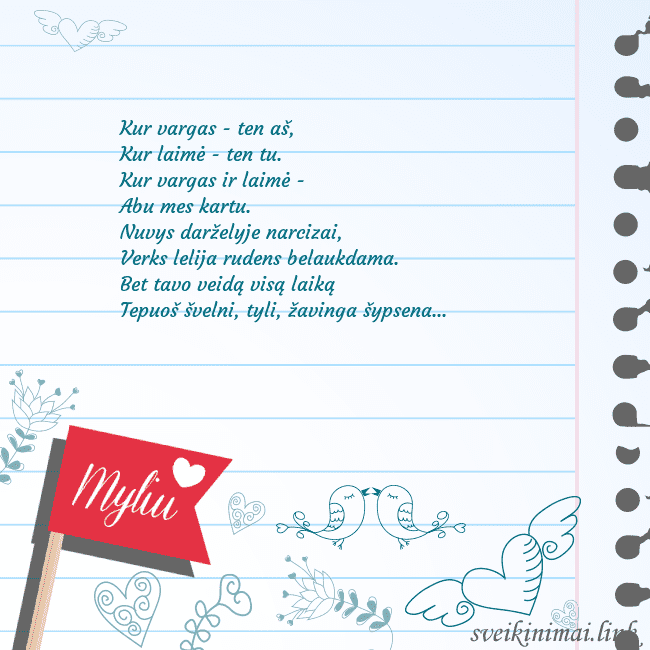 Kur vargas - ten aš,
Kur laimė - ten tu.
Kur vargas ir laimė -
Abu mes kartu.
Nuvys darželyje narcizai,
Verks lelija rudens belaukdama.
Bet tavo veidą visą laiką
Tepuoš švelni, tyli, žavinga šypsena...
Myliu
sveikinimai.link